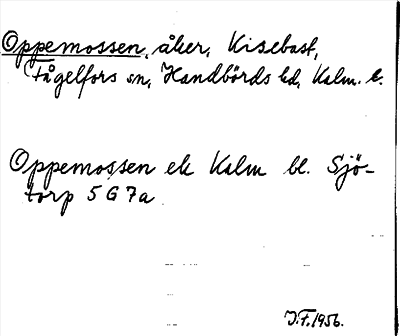 Oppemossen, åker, Kisebast,
Fågelfors sn, Handbörds hd, Kalm. l.
Oppemossen ek Kalm bl. Sjö-
torp 5 G 7a
J.F. 1956.